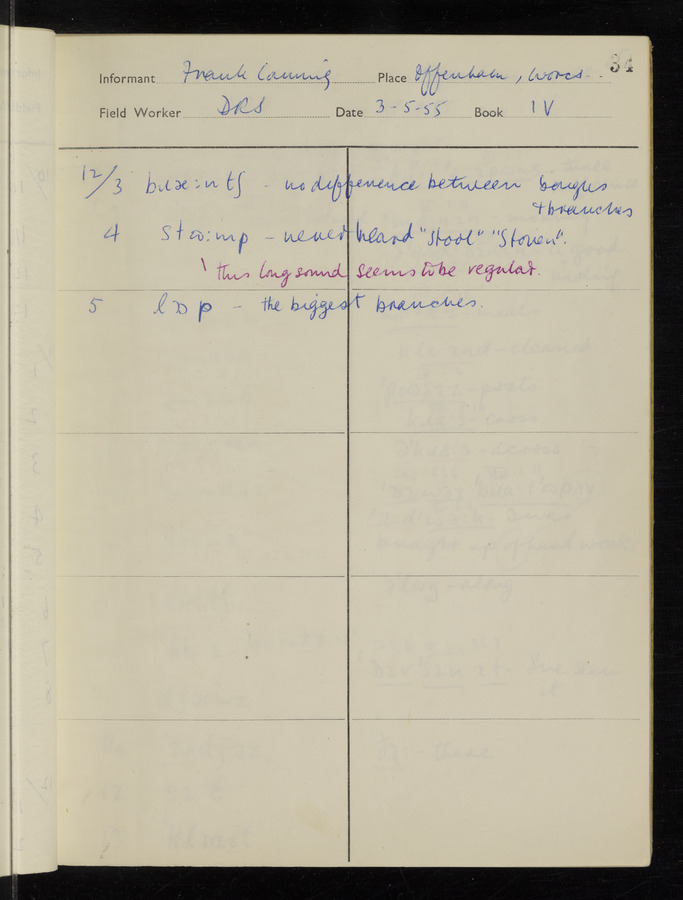 34
Informant Frank Canning Place Offenham, Worcs.
Field Worker DRS Date 3-5-55 Book IV
12/3 bɹæ:ntʃ - no difference between boughs
+ branches
4 stω:mp - never heard "stool" "stoven".
this long sound seems to be regular.
5 lɒp - the biggest branches.